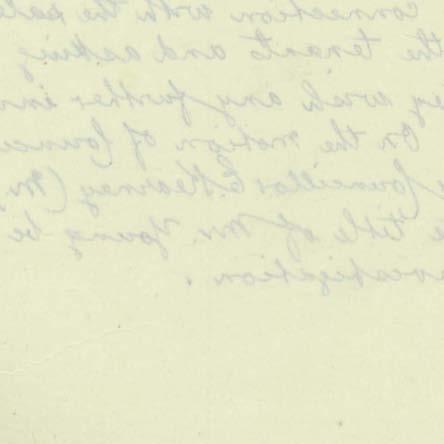 connection with the sale
the tenants and asking
ey wish any further inv
On the motion of Counci
Councillor E. Kearney (M
e title of Mr. Young be
vestigation.